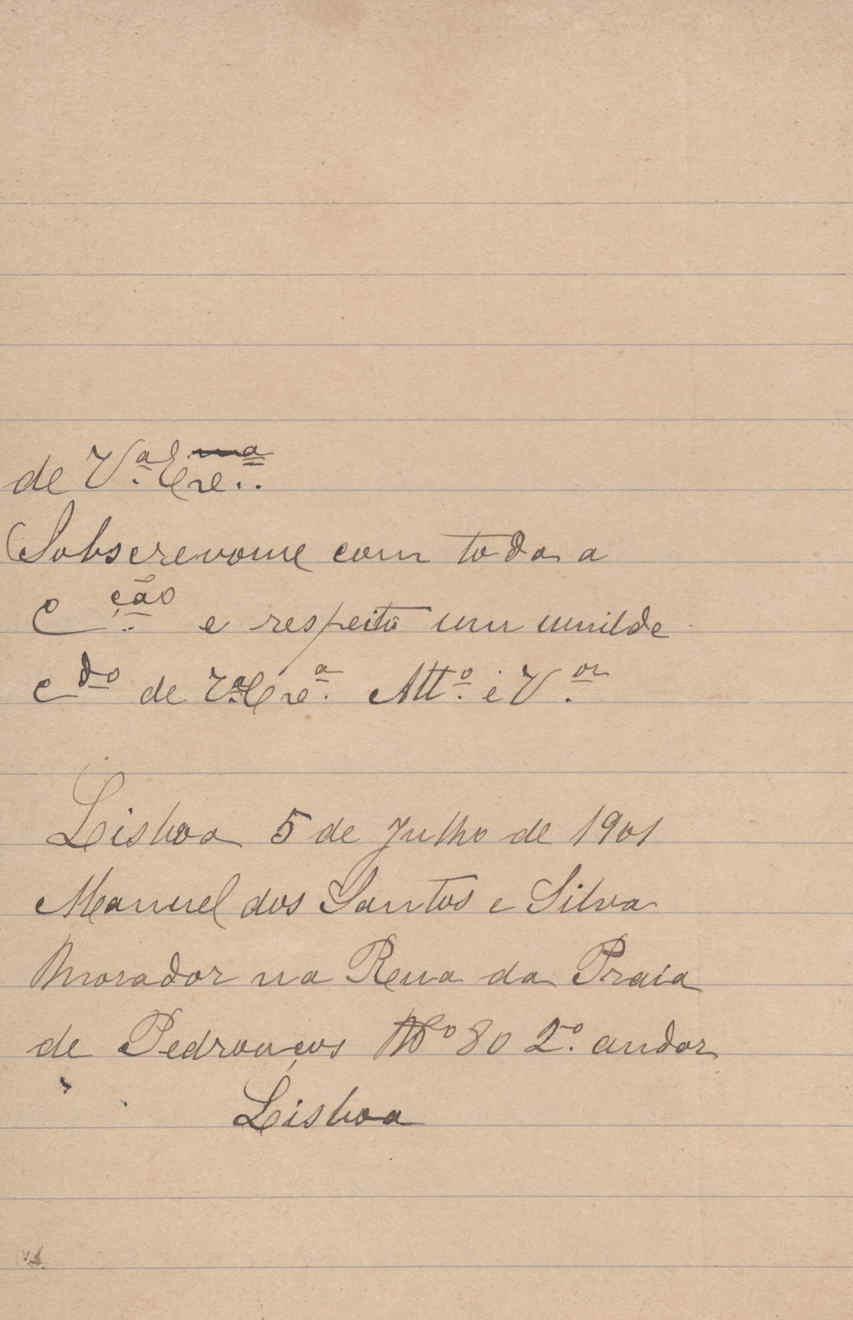 de V.ª Exe.ª.
Subscrevome com toda a
C.ção e respeito um umilde
cdo de V.ª Exe.ª. Att.º e V.or
Lisboa 5 de Julho de 1901
Manuel dos Santos e Silva
Morador na Rua da Praia
de Pedrouços Nº 80 2.º andar
Lisboa